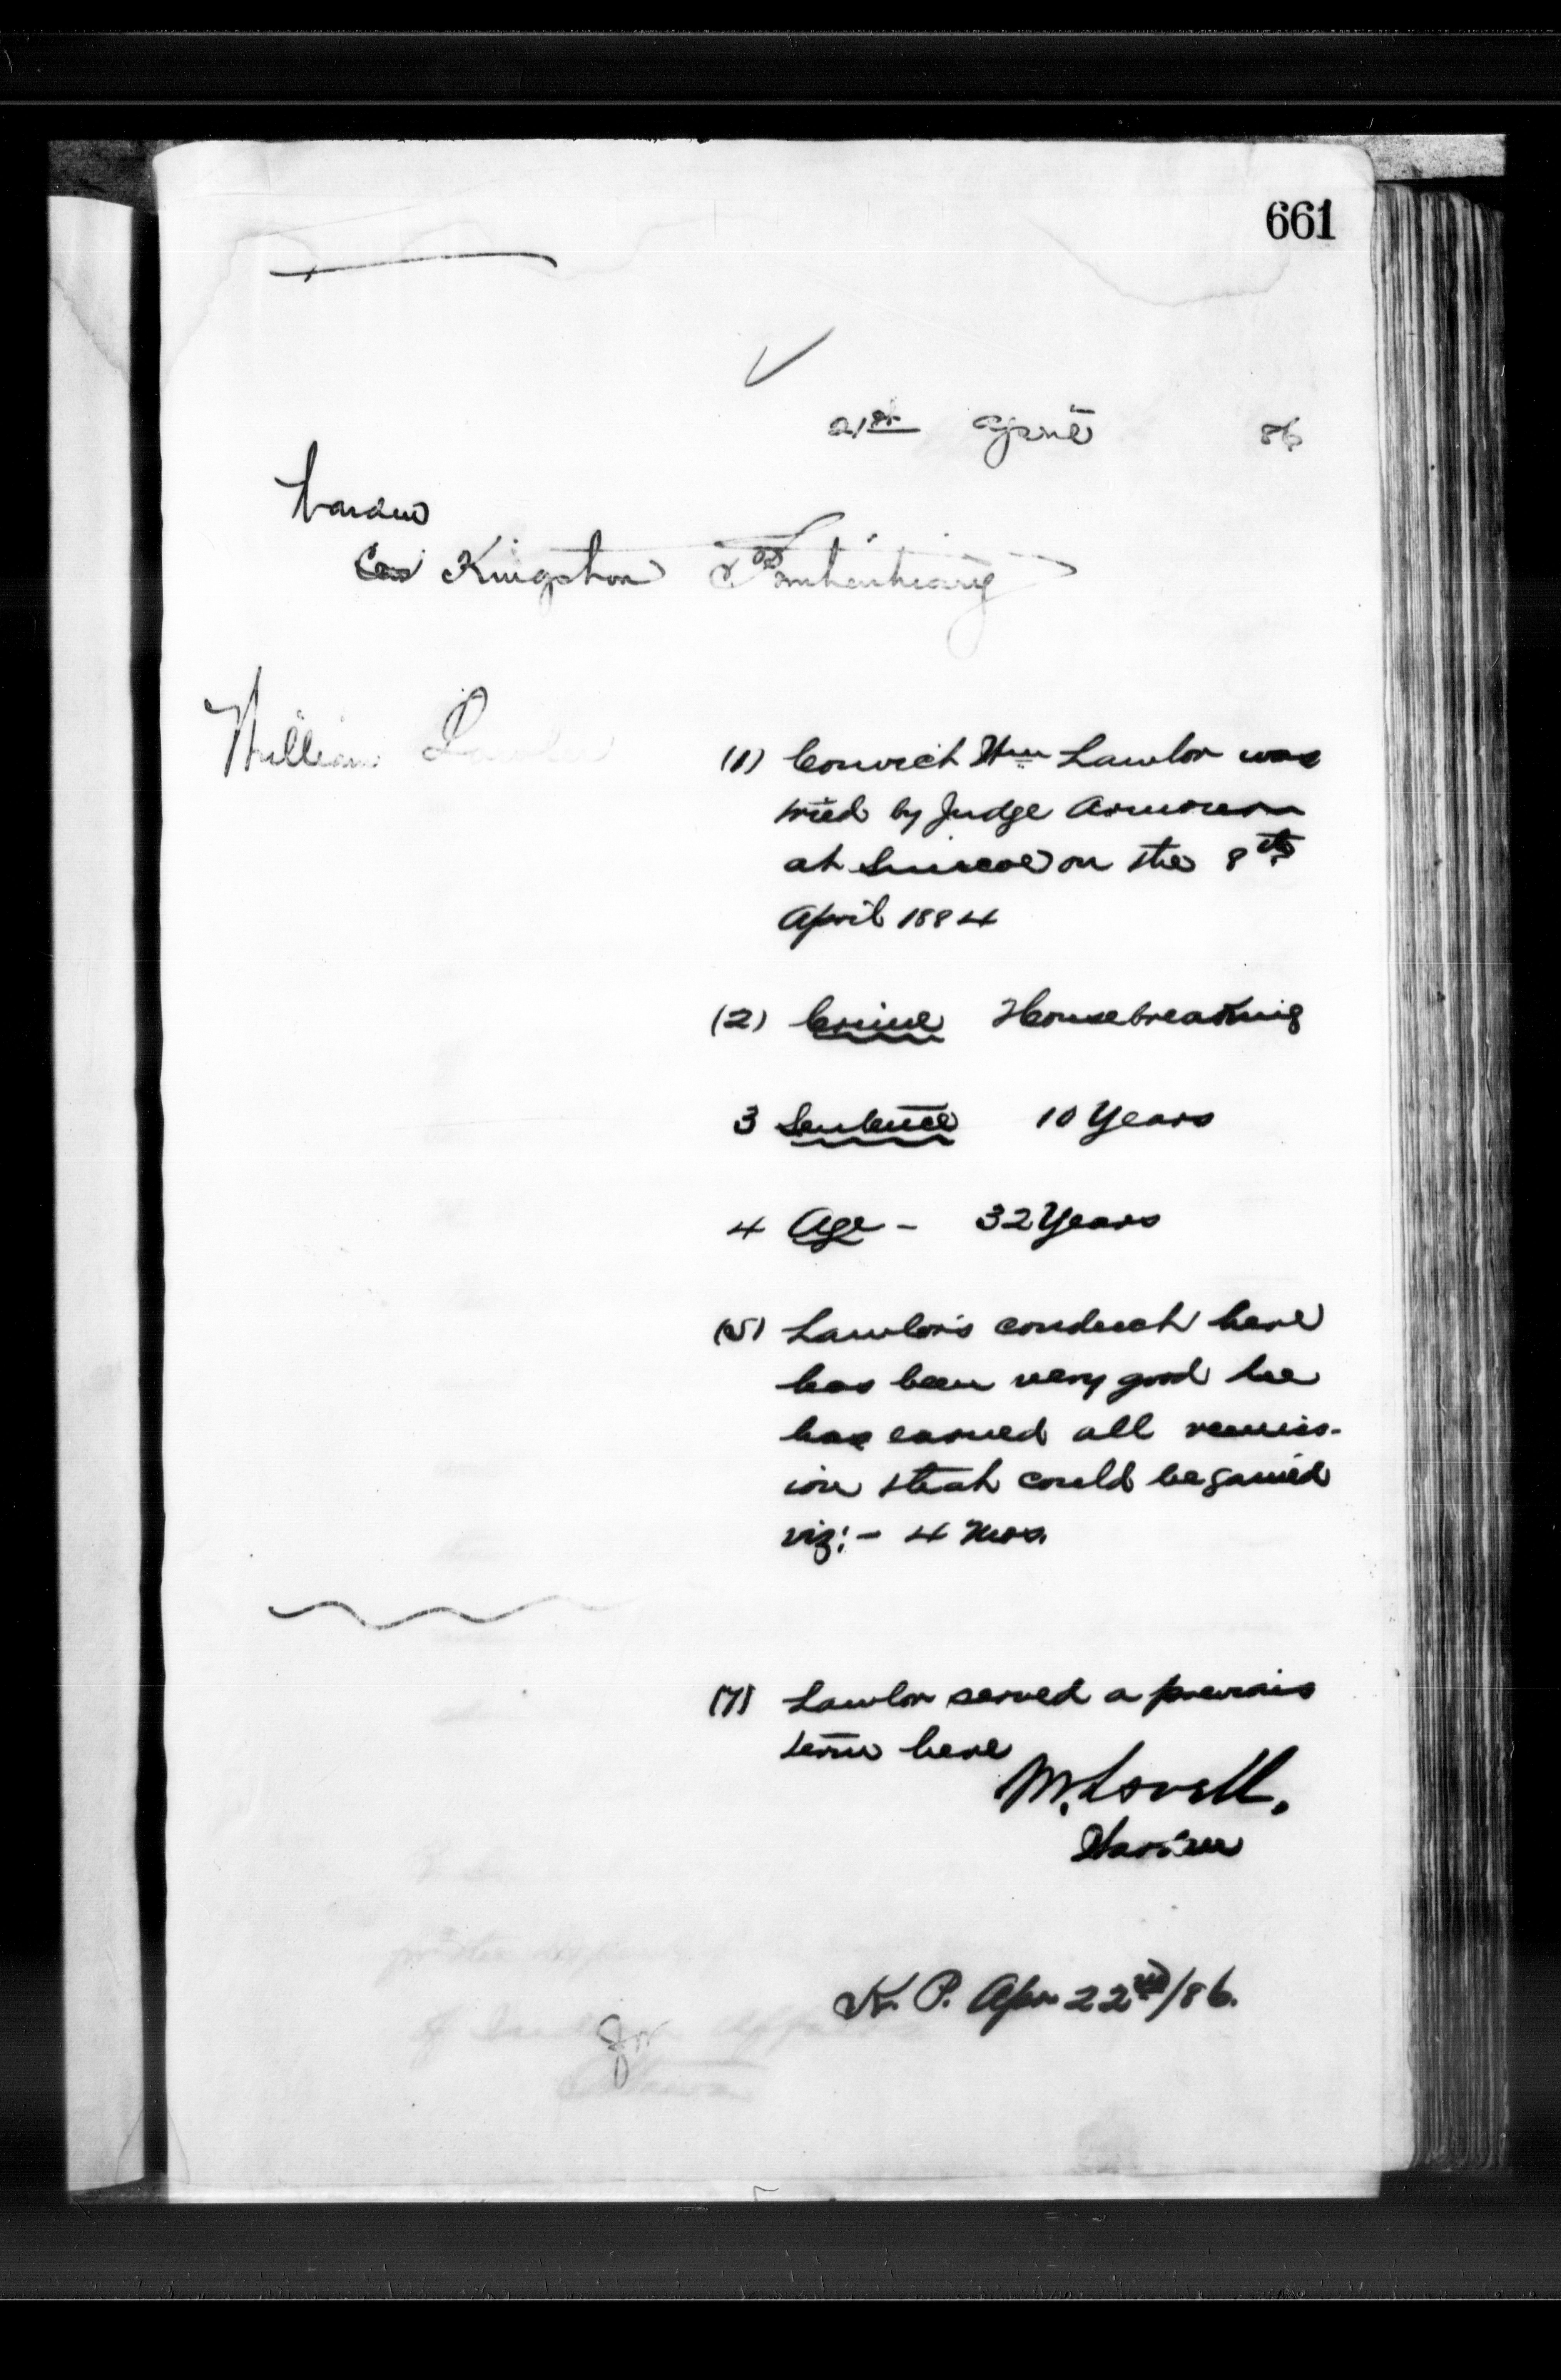 661
21st April 86
Warden
Kingston Penitentiary
William Lawlor
(1) Convict Wm Lawlor was
tried by Judge Armour
at Simcoe on the 8th
April 1884
(2) Crime Housebreaking
3 Sentence 10 Years
4 Age - 32 Years
(5) Lawlor's conduct here
has been very good he
has earned all remiss-
ion that could be gained
viz:- 4 Mos.
(7) Lawlor served a previous
term here
M. Lavell.
Warden
K. P. Apr 22nd/86.
for